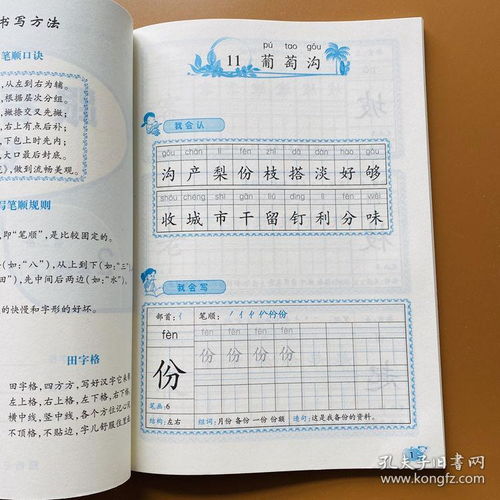 书写方法
笔顺口诀
,从左到右为辅。
,根据层次分组。
,撇捺交叉先撇;
,右上有点后补;
,下包上时先内;
,大口最后封底。
,做到流畅美观。
写笔顺规则
,即“笔顺”,是比较固定的。
(如:“八”),从上到下(如:“三”
,先中间后两边(如:“水”
的快慢和字形的好坏。
田字格
田字格,四方方,写好汉字它来
左上格,右上格,左下格,
横中线,竖中线,各个方位记心
不顶格,不贴边,字儿舒服住
pú tao gōu
11 葡萄沟
我会认
gōu chǎn lí fèn zhī dā dàn hǎo gòu
沟 产 梨 份 枝 搭 淡 好 够
shōu chéng shì gān liú dīng lì fēn wèi
收 城 市 干 留 钉 利 分 味
我会写
部首:亻 笔顺:
fèn fèn fèn fèn fèn
份 份 份 份 份
笔画:6
结构:左右 组词:月份 备份 一份 份额 造句:这是我备份的资料。
1
孔夫子旧书网
www.kongfz.com